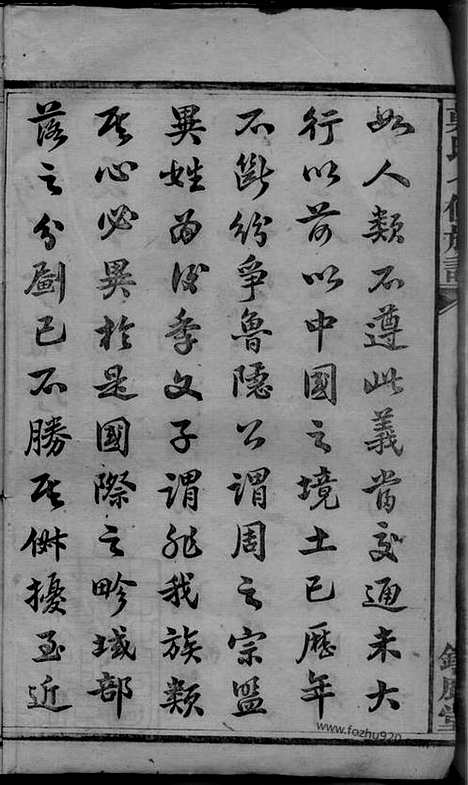 如人類不遵此義當交通未大
行以前以中國之境土已歷年
不斷紛爭魯隱公謂周之宗盟
異姓為後季文子謂非我族類
其心必異於是國際之畛域部
落之分劇已不勝其俶擾至近
氏七修族譜
堂
www.fozhu920.com